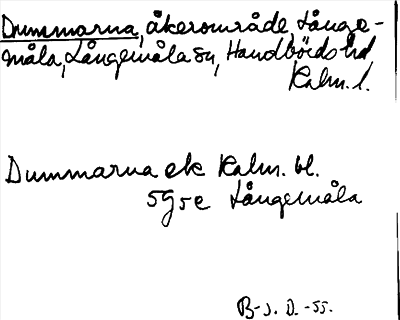 Dummarna, åkerområde, Långe-
måla, Långemåla sn, Handbörds hd
Kalm. l.
Dummarna ek Kalm. bl.
5g5e Långemåla
B-s. D. -55.